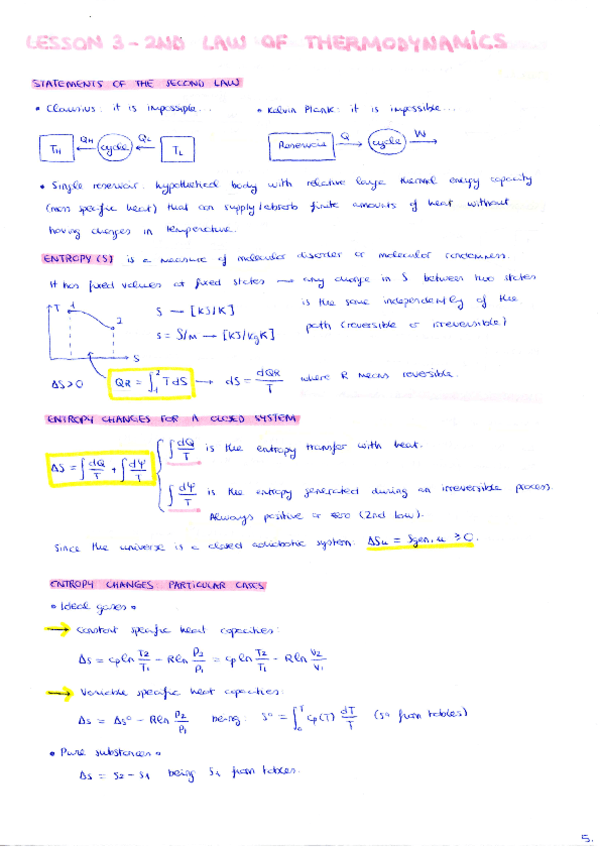 LESSON 3 - 2ND LAW OF THERMODYNAMICS
STATEMENTS OF THE SECOND LAW
• Clausius: it is impossible... • Kelvin Plank: it is impossible...
TH QH cycle QL TL Reservoir Q cycle W
• Single reservoir: hypothetical body with relative large thermal energy capacity
(mass specific heat) that can supply/absorb finite amounts of heat without
having changes in temperature.
ENTROPY (S) is a measure of molecular disorder or molecular randomness.
It has fixed values at fixed states → any change in S between two states
is the same independently of the
path (reversible or irreversible)
T 1 2 S
S → [kJ/K]
s = S/m → [kJ/kgK]
ΔS>0 QR = ∫₁² T dS → dS = dQR/T where R means reversible.
ENTROPY CHANGES FOR A CLOSED SYSTEM
ΔS = ∫ dQ/T + ∫ dΨ/T
∫ dQ/T is the entropy transfer with heat.
∫ dΨ/T is the entropy generated during an irreversible process.
Always positive or zero (2nd law).
Since the universe is a closed adiabatic system: ΔSu = Sgen,u ≥ 0.
ENTROPY CHANGES PARTICULAR CASES
• Ideal gases •
→ Constant specific heat capacities:
Δs = cp ln T2/T1 - R ln P2/P1 = cp ln T2/T1 - R ln V2/V1
→ Variable specific heat capacities:
Δs = Δs° - R ln P2/P1 being: s° = ∫₀ᵀ cp(T) dT/T (s° from tables)
• Pure substances •
Δs = s2 - s1 being s1 from tables.
5.